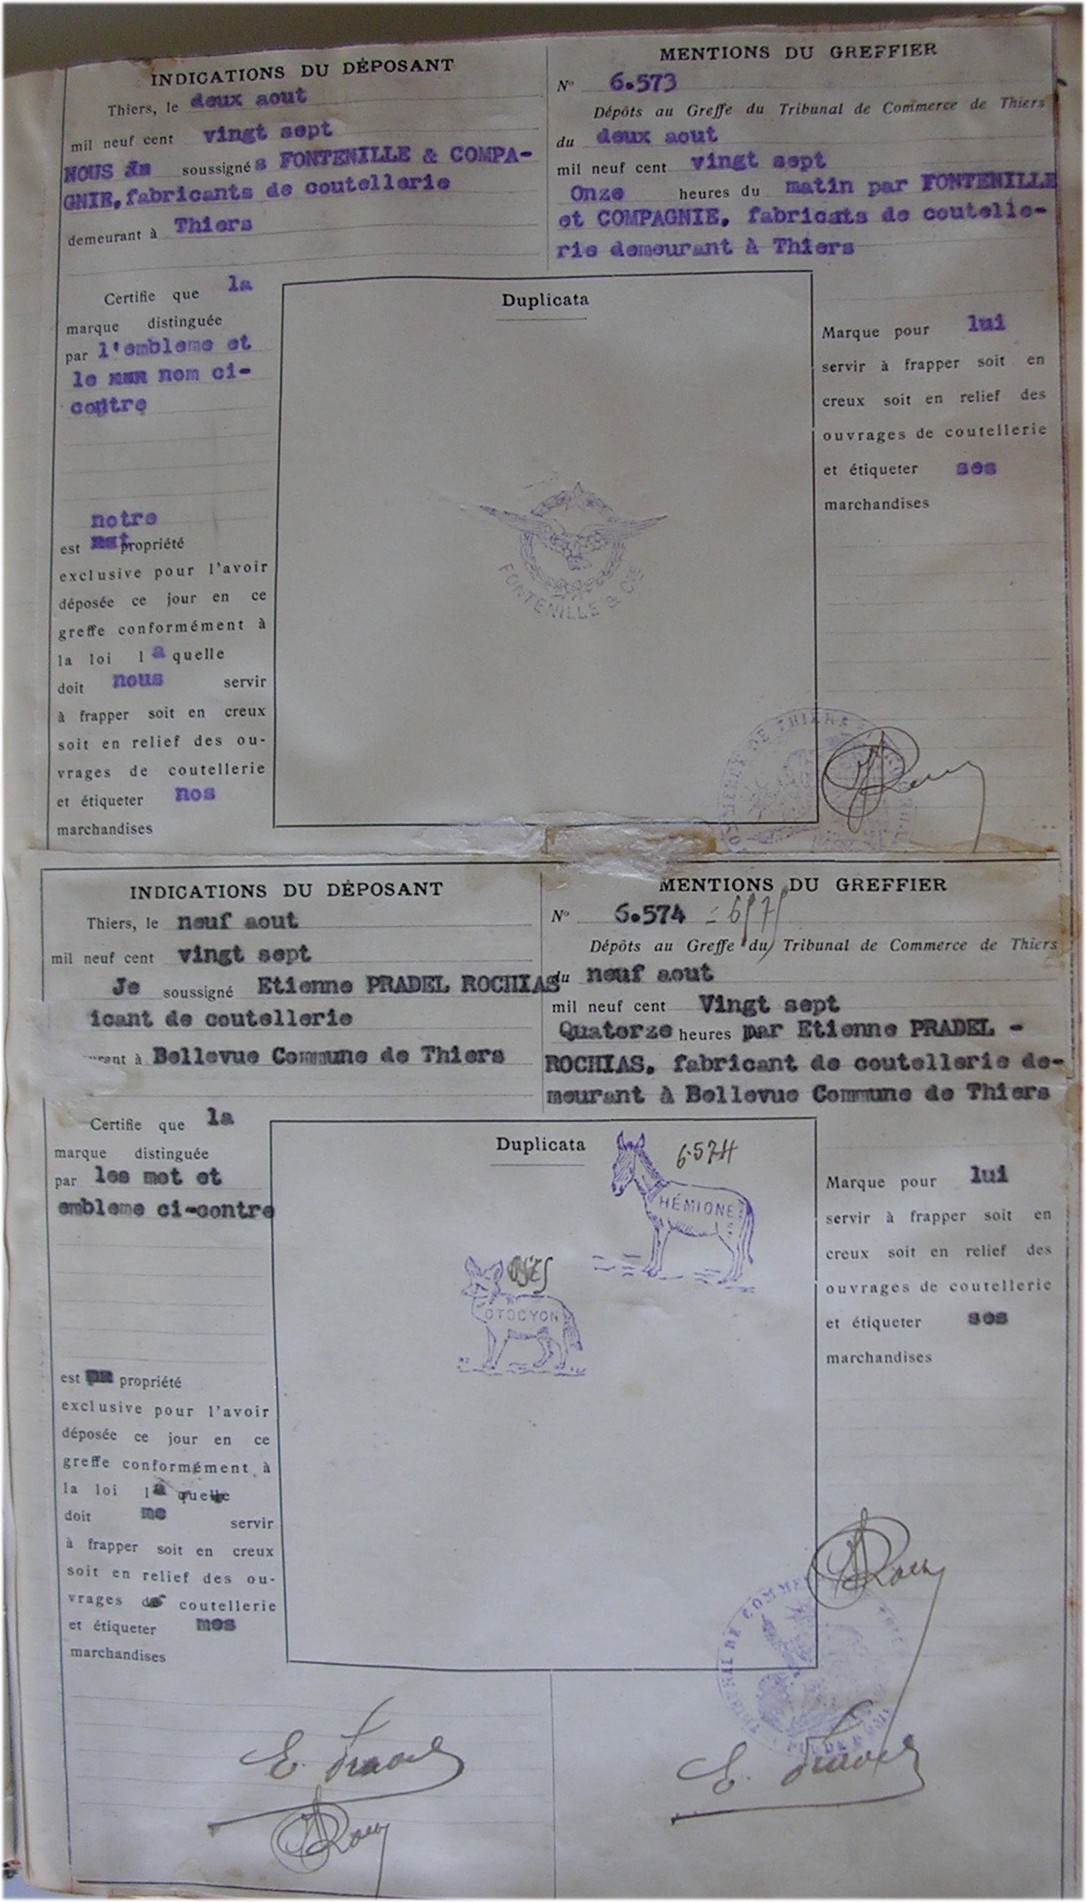 INDICATIONS DU DÉPOSANT
Thiers, le deux aout
mil neuf cent vingt sept
NOUS soussigné s FONTENILLE & COMPA-
GNIE, fabricants de coutellerie
demeurant à Thiers
MENTIONS DU GREFFIER
N° 6.573
Dépôts au Greffe du Tribunal de Commerce de Thiers
du deux aout
mil neuf cent vingt sept
Onze heures du matin par FONTENILLE
et COMPAGNIE, fabricats de coutelle-
rie demeurant à Thiers
Certifie que la
marque distinguée
par l'embleme et
le nom ci-
contre
notre
est propriété
exclusive pour l'avoir
déposée ce jour en ce
greffe conformément à
la loi l a quelle
doit nous servir
à frapper soit en creux
soit en relief des ou-
vrages de coutellerie
et étiqueter nos
marchandises
Duplicata
FONTENILLE & CIE
Marque pour lui
servir à frapper soit en
creux soit en relief des
ouvrages de coutellerie
et étiqueter ses
marchandises
COMMERCE DE THIERS
INDICATIONS DU DÉPOSANT
Thiers, le neuf aout
mil neuf cent vingt sept
Je soussigné Etienne PRADEL ROCHIAS
icant de coutellerie
rant à Bellevue Commune de Thiers
MENTIONS DU GREFFIER
N° 6.574 = 6575
Dépôts au Greffe du Tribunal de Commerce de Thiers
du neuf aout
mil neuf cent Vingt sept
Quatorze heures par Etienne PRADEL -
ROCHIAS, fabricant de coutellerie de-
meurant à Bellevue Commune de Thiers
Certifie que la
marque distinguée
par les mot et
embleme ci-contre
est propriété
exclusive pour l'avoir
déposée ce jour en ce
greffe conformément à
la loi l a quelle
doit me servir
à frapper soit en creux
soit en relief des ou-
vrages de coutellerie
et étiqueter mes
marchandises
Duplicata
6.574
HÉMIONE
OTOCYON
Marque pour lui
servir à frapper soit en
creux soit en relief des
ouvrages de coutellerie
et étiqueter ses
marchandises
TRIBUNAL DE COMMERCE
E. Pradel
E. Pradel